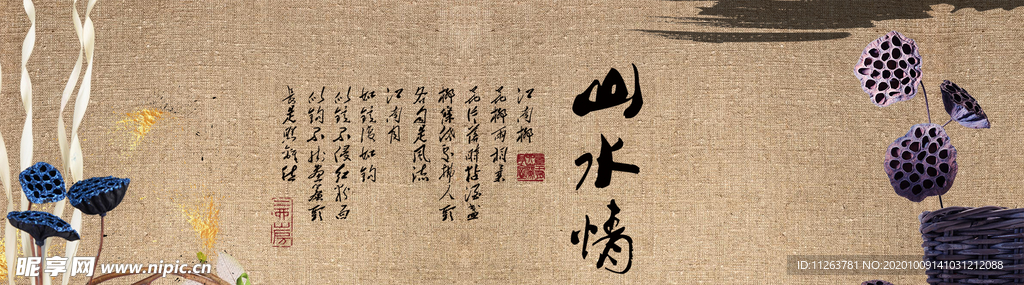 山水情
江南柳
花柳两相柔
花片落时粘酒盏
柳条低处拂人头
各自是风流
江南月
如镜复如钩
似镜不侵红粉面
似钩不挂画帘头
长是照离愁
昵享网 www.nipic.cn
ID:11263781 NO:20201009141031212088